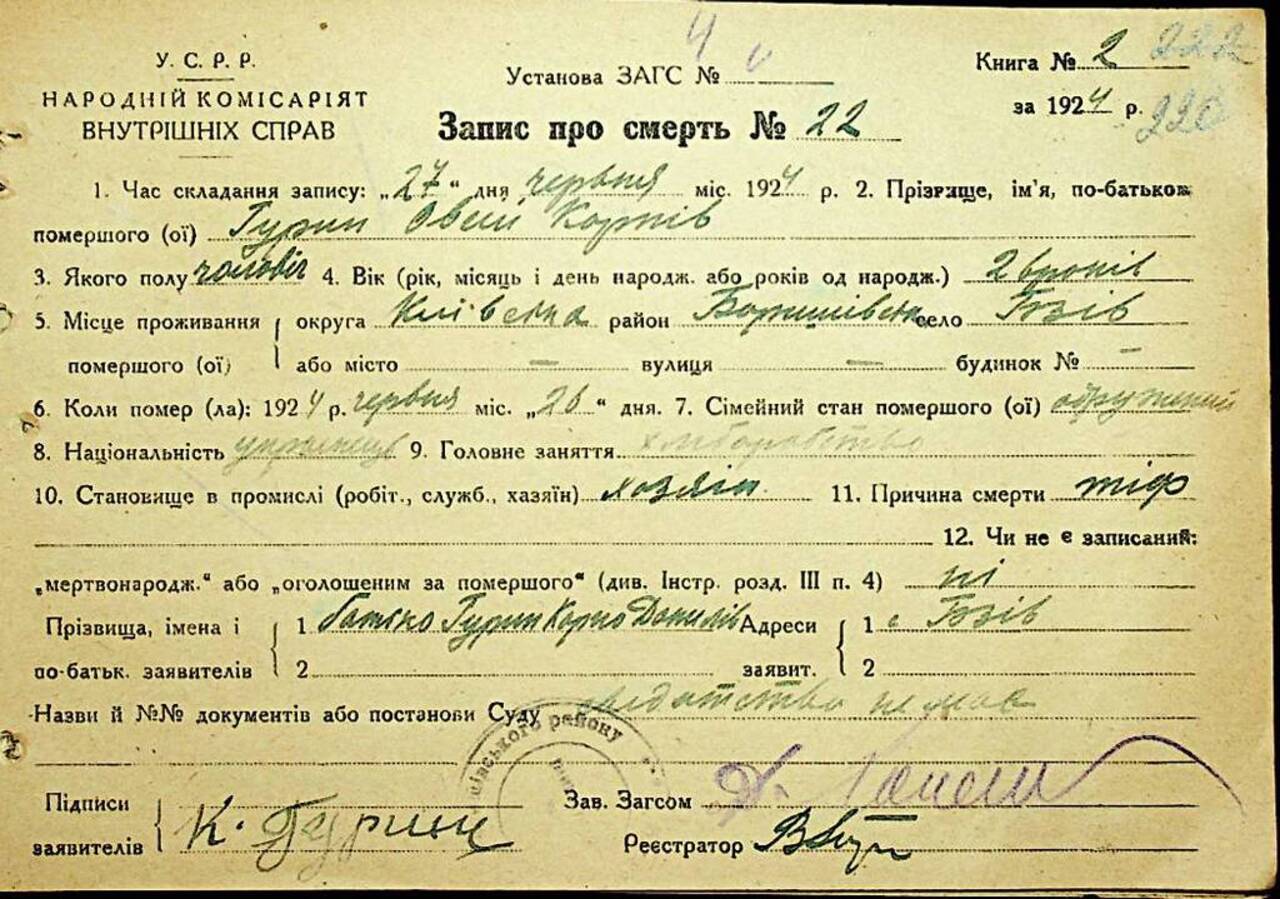 У. С. Р. Р.
НАРОДНІЙ КОМІСАРІЯТ
ВНУТРІШНІХ СПРАВ
4
Установа ЗАГС №
Книга № 2 222
за 1924 р. 220
Запис про смерть № 22
1. Час складання запису: „27" дня червня міс. 1924 р. 2. Прізвище, ім'я, по-батькові
помершого (ої) Гурин Овсій Корнів
3. Якого полу чоловіч 4. Вік (рік, місяць і день народж. або років од народж.) років
5. Місце проживання округа Київська район село Гозів
помершого (ої) або місто — вулиця — будинок № —
6. Коли помер (ла): 1924 р. червня міс. „26" дня. 7. Сімейний стан помершого (ої) одружений
8. Національність українець 9. Головне заняття хліборобство
10. Становище в промислі (робіт., служб., хазяїн) хозяїн 11. Причина смерти тіф
12. Чи не є записаний:
„мертвонародж." або „оголошеним за помершого" (див. Інстр. розд. III п. 4) ні
Прізвища, імена і 1 батько Гурин Корно Данилів Адреси 1 с Гозів
по-батьк. заявителів 2 заявит. 2
Назви й №№ документів або постанови Суду немає
івського району
Підписи
заявителів К. Гурин
Зав. Загсом
Реєстратор